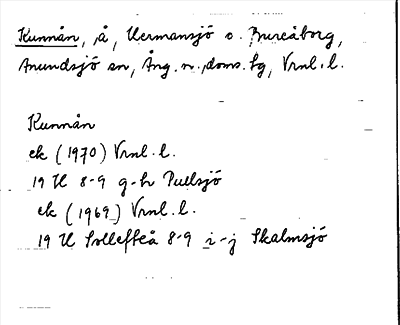 Kunnån, å, Hermansjö o. Bureåborg,
Anundsjö sn, Ång. n. doms. fg, Vrnl. l.
Kunnån
ek (1970) Vrnl. l.
19 H 8-9 g-h Pullsjö
ek (1969) Vrnl. l.
19 H Sollefteå 8-9 i-j Skalmsjö